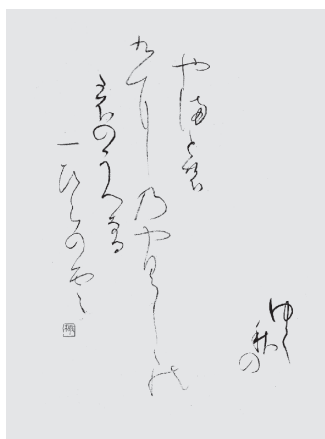 ゆく
秋の
やまとの
くに乃やくしじの
塔のうへなる
一ひらの雲